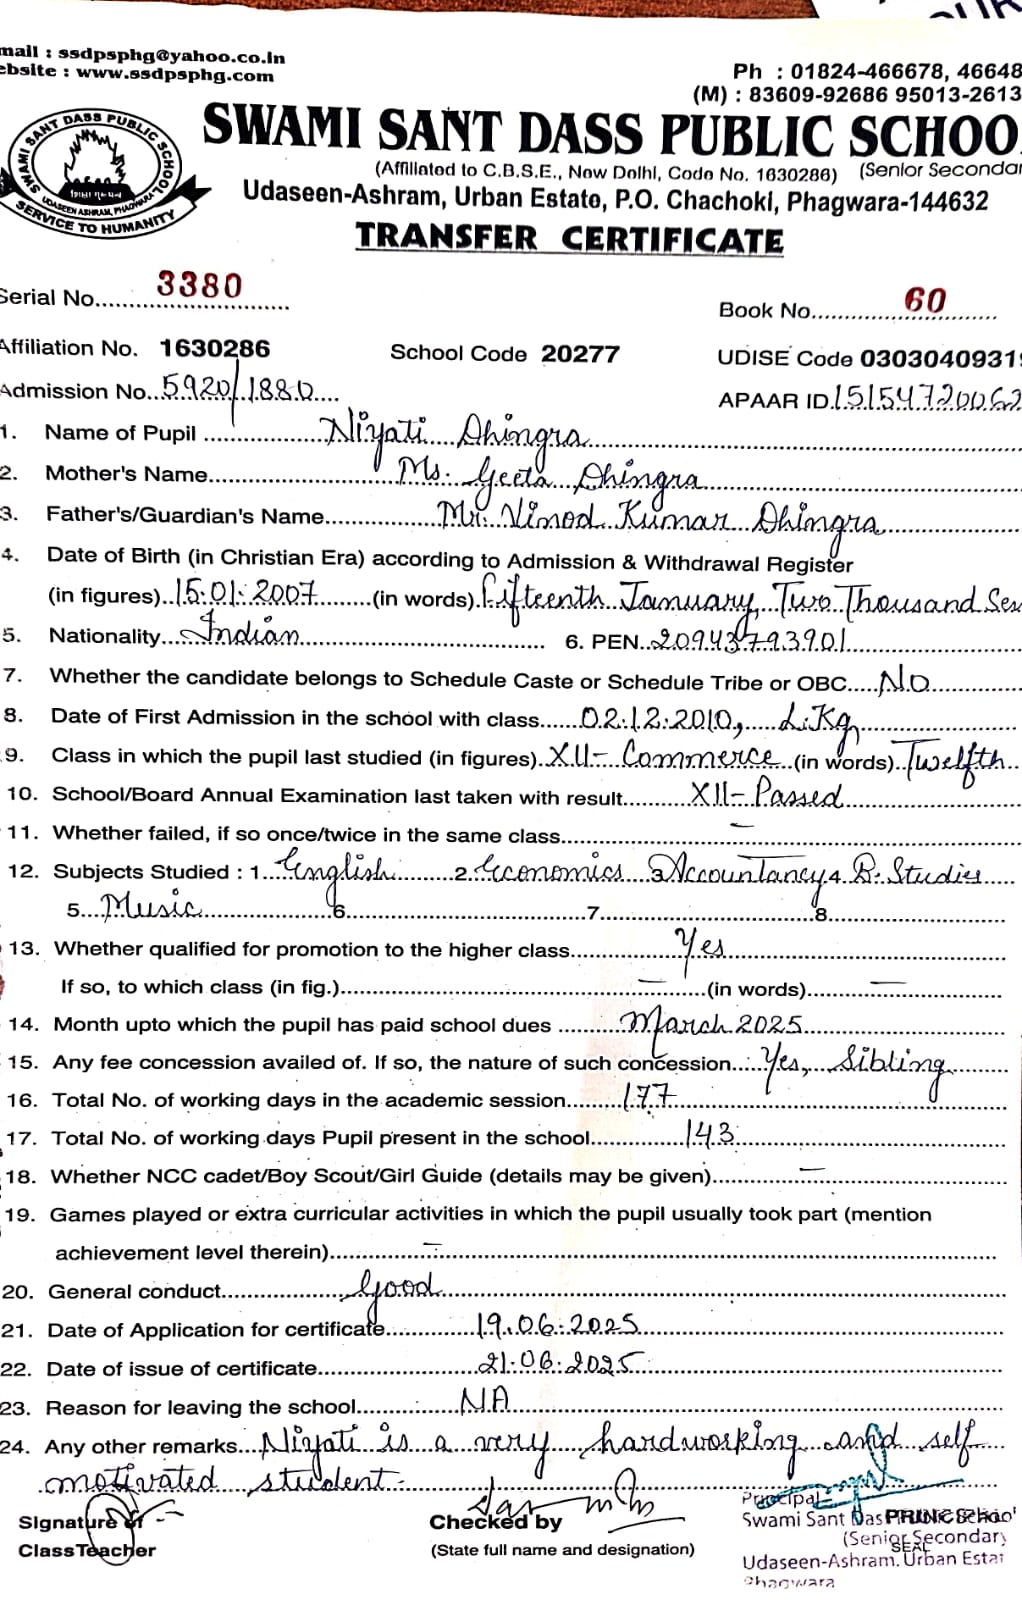 mail : ssdpsphg@yahoo.co.in
ebsite : www.ssdpsphg.com
Ph : 01824-466678, 46648
(M) : 83609-92686 95013-2613
SWAMI SANT DASS PUBLIC SCHOO
SWAMI SANT DASS PUBLIC SCHOOL
UDASEEN ASHRAM, PHAGWARA
SERVICE TO HUMANITY
(Affiliated to C.B.S.E., New Delhi, Code No. 1630286) (Senior Secondar
Udaseen-Ashram, Urban Estate, P.O. Chachoki, Phagwara-144632
TRANSFER CERTIFICATE
Serial No. 3380
Book No. 60
Affiliation No. 1630286 School Code 20277 UDISE Code 0303040931
Admission No. 5920/1880 APAAR ID. 15154720062
1. Name of Pupil Niyati Dhingra
2. Mother's Name Ms. Geeta Dhingra
3. Father's/Guardian's Name Mr. Vinod Kumar Dhingra
4. Date of Birth (in Christian Era) according to Admission & Withdrawal Register
(in figures) 15.01.2007 (in words) Fifteenth January, Two Thousand Sev
5. Nationality Indian 6. PEN 20943793901
7. Whether the candidate belongs to Schedule Caste or Schedule Tribe or OBC No
8. Date of First Admission in the school with class 02.12.2010, L.Kg
9. Class in which the pupil last studied (in figures) XII- Commerce (in words) Twelfth
10. School/Board Annual Examination last taken with result XII-Passed
11. Whether failed, if so once/twice in the same class —
12. Subjects Studied : 1. English 2. Economics 3. Accountancy 4. B. Studies
5. Music 6 7 8
13. Whether qualified for promotion to the higher class Yes
If so, to which class (in fig.) — (in words) —
14. Month upto which the pupil has paid school dues March 2025
15. Any fee concession availed of. If so, the nature of such concession Yes, Sibling
16. Total No. of working days in the academic session 177
17. Total No. of working days Pupil present in the school 143
18. Whether NCC cadet/Boy Scout/Girl Guide (details may be given) —
19. Games played or extra curricular activities in which the pupil usually took part (mention
achievement level therein) —
20. General conduct Good
21. Date of Application for certificate 19.06.2025
22. Date of issue of certificate 21.06.2025
23. Reason for leaving the school NA
24. Any other remarks Niyati is a very hardworking and self
motivated student.
Signature of
Class Teacher
Checked by
(State full name and designation)
Principal
Swami Sant Das
PRINC
(Senior Secondary
SEAL
Udaseen-Ashram. Urban Estat
Phagwara